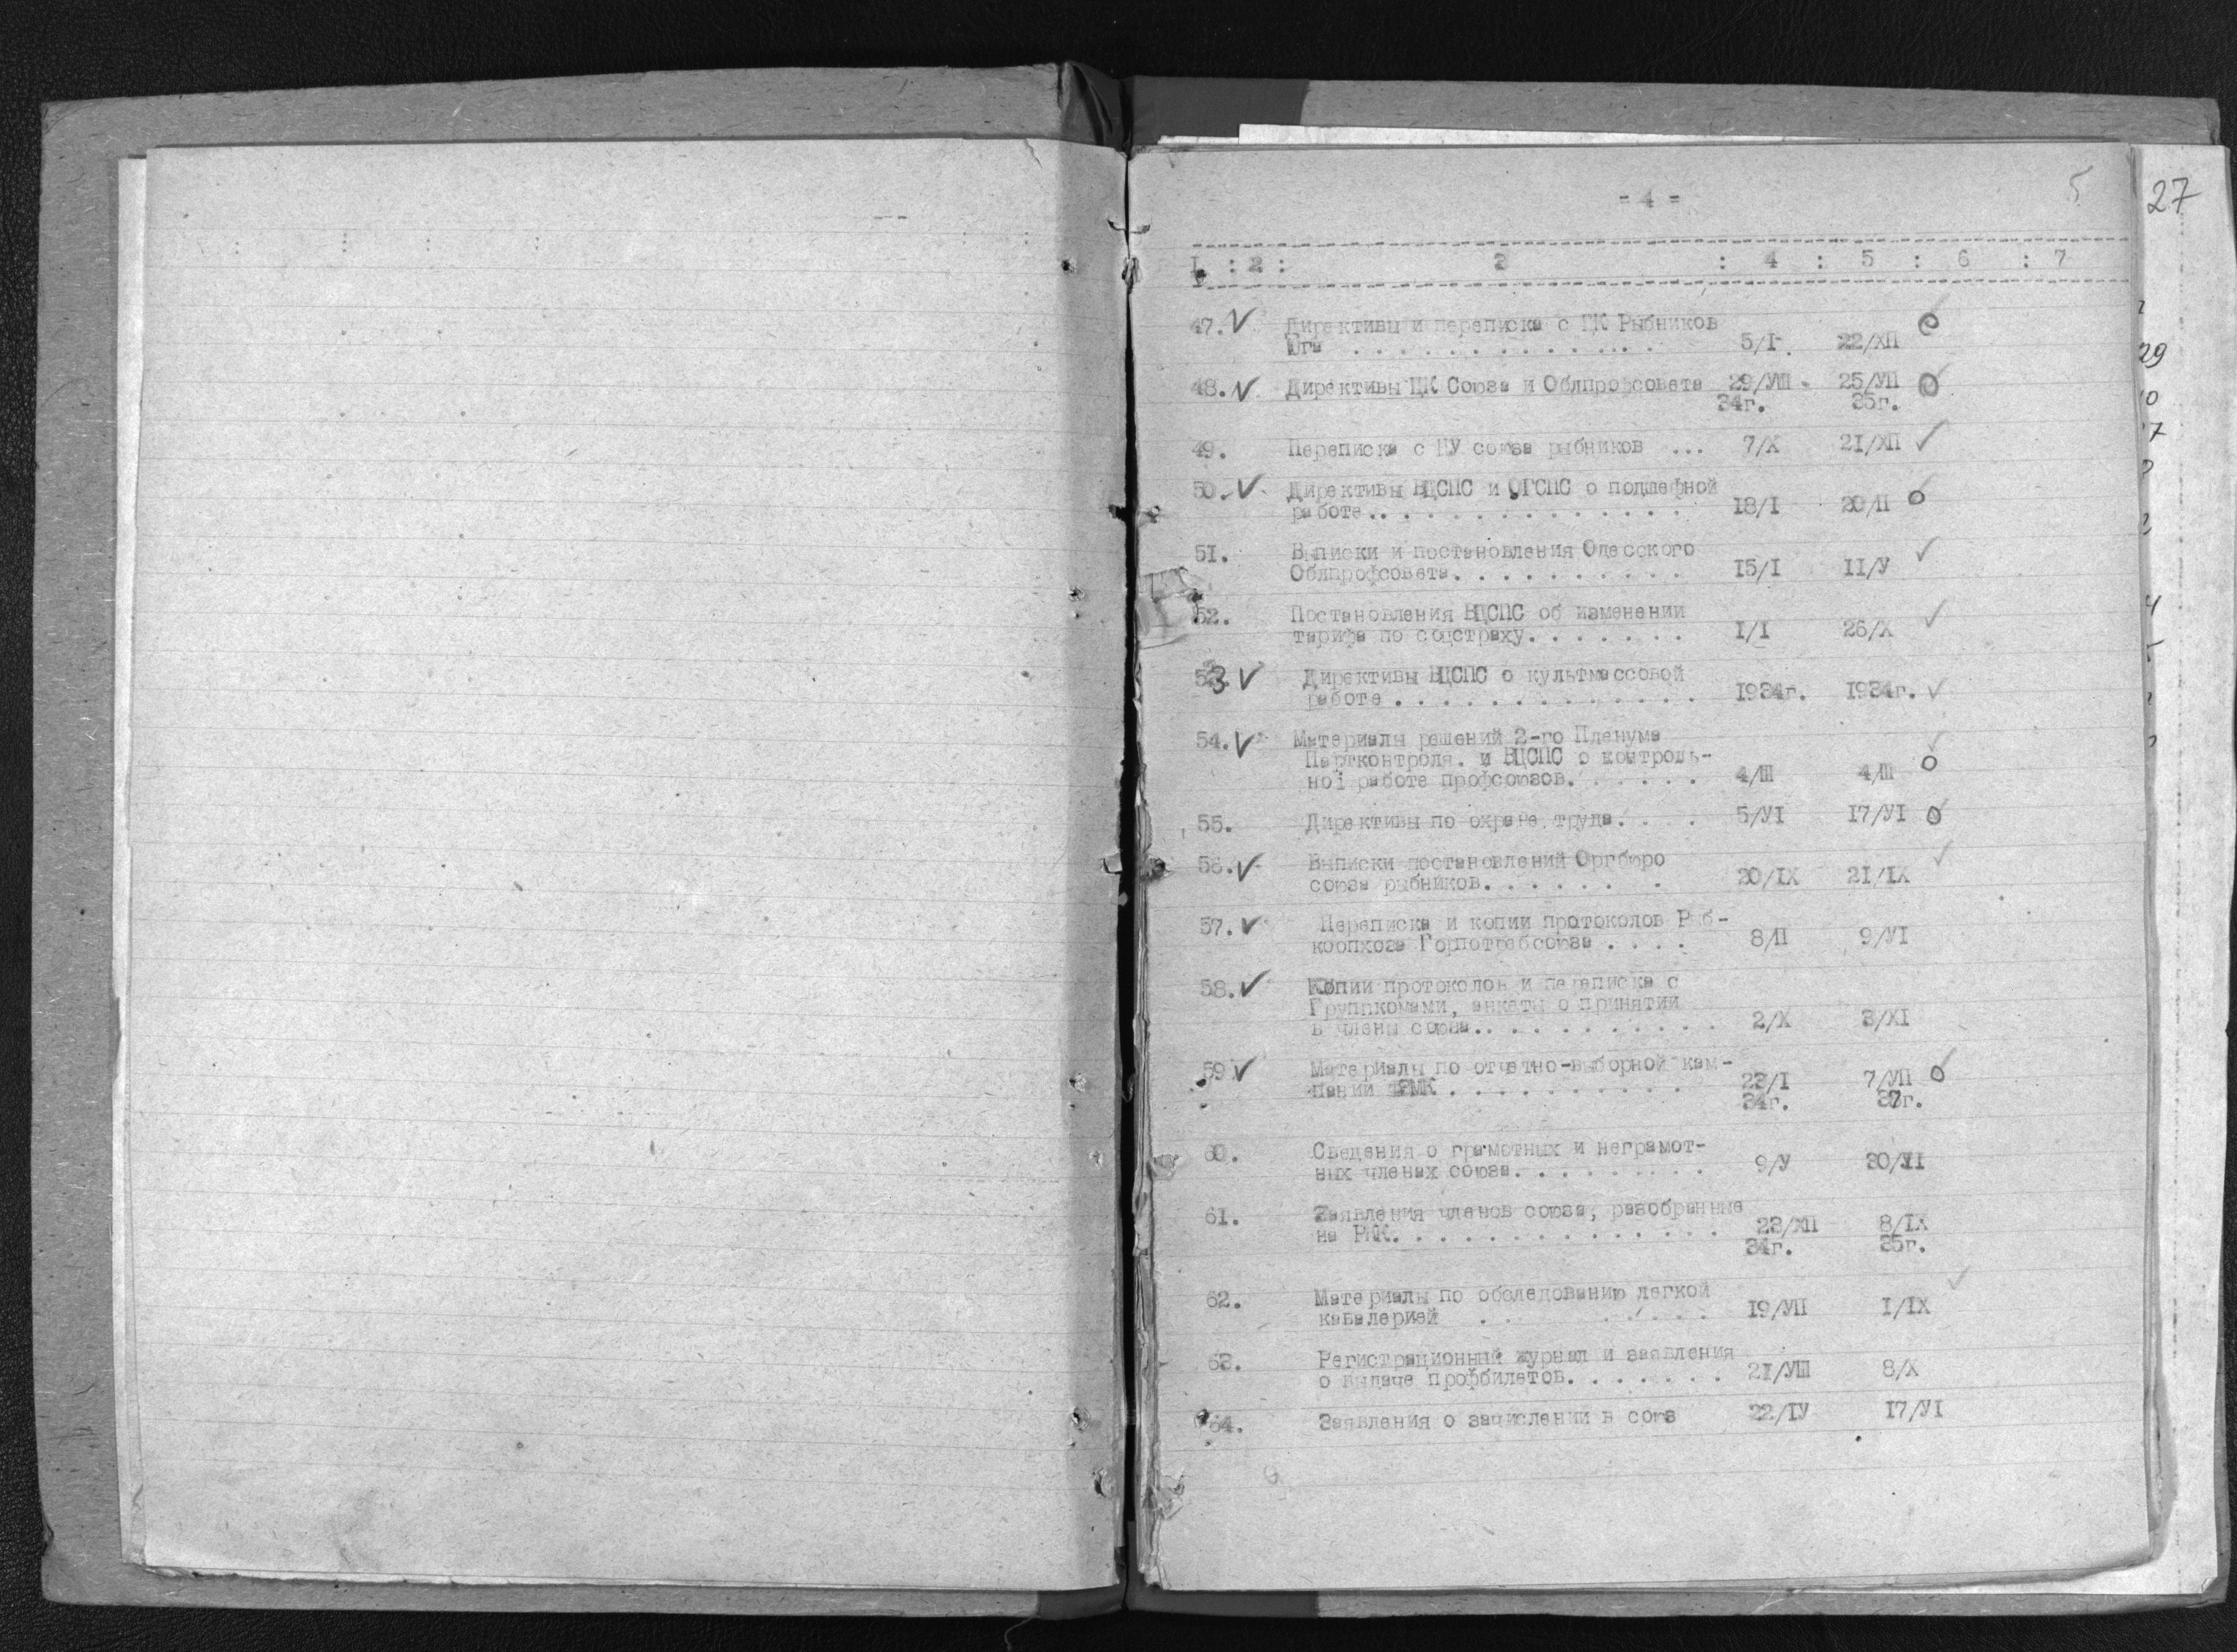 - 4 -
5
27
I : 2 : 3 : 4 : 5 : 6 : 7
47. V Директивы и переписка с ЦК Рыбников
Юга . . . . . . . . . . . . . . . 5/I. 22/ХП
48. V Директивы ЦК Союза и Облпрофсовета 29/УШ 25/УП
34г. 35г.
49. Переписка с ЦУ союза рыбников ... 7/Х 21/ХП
50. V Директивы ВЦСПС и ОГСПС о подшефной
работе. . . . . . . . . . . . . . 18/I 20/П
51. Выписки и постановления Одесского
Облпрофсовета. . . . . . . . . . I5/I II/У
52. Постановления ВЦСПС об изменении
тарифа по соцстраху. . . . . . . I/I 26/Х
53. V Директивы ВЦСПС о культмассовой
работе . . . . . . . . . . . . . I934г. I934г.
54. V Материалы решений 2-го Пленума
Партконтроля. и ВЦСПС о контроль-
ной работе профсоюзов. . . . . . 4/Ш 4/Ш
55. Директивы по охране труда. . . . 5/УI I7/УI
56. V Выписки постановлений Оргбюро
союза рыбников. . . . . . . 20/IХ 2I/IХ
57. V Переписка и копии протоколов Рыб-
коопхоза Горпотребсоюза . . . . 8/П 9/УI
58. V Копии протоколов и переписка с
Группкомами, анкеты о принятии
в члены союза. . . . . . . . . . . 2/Х 3/ХI
59 V Материалы по отчетно-выборной кам-
пании . . . . . . . . . . 23/I 7/УП
34г. 37г.
60. Сведения о грамотных и неграмот-
ных членах союза. . . . . . . . . 9/У 30/
61. Заявления членов союза, разобранные
на РКК. . . . . . . . . . . . . . 23/ХП 8/IХ
34г. 35г.
62. Материалы по обследованию легкой
кавалерией . . . . . . 19/УП I/IХ
63. Регистрационный журнал и заявления
о выдаче профбилетов. . . . . . . 2I/УШ 8/Х
64. Заявления о зачислении в союз 22/IУ I7/УI